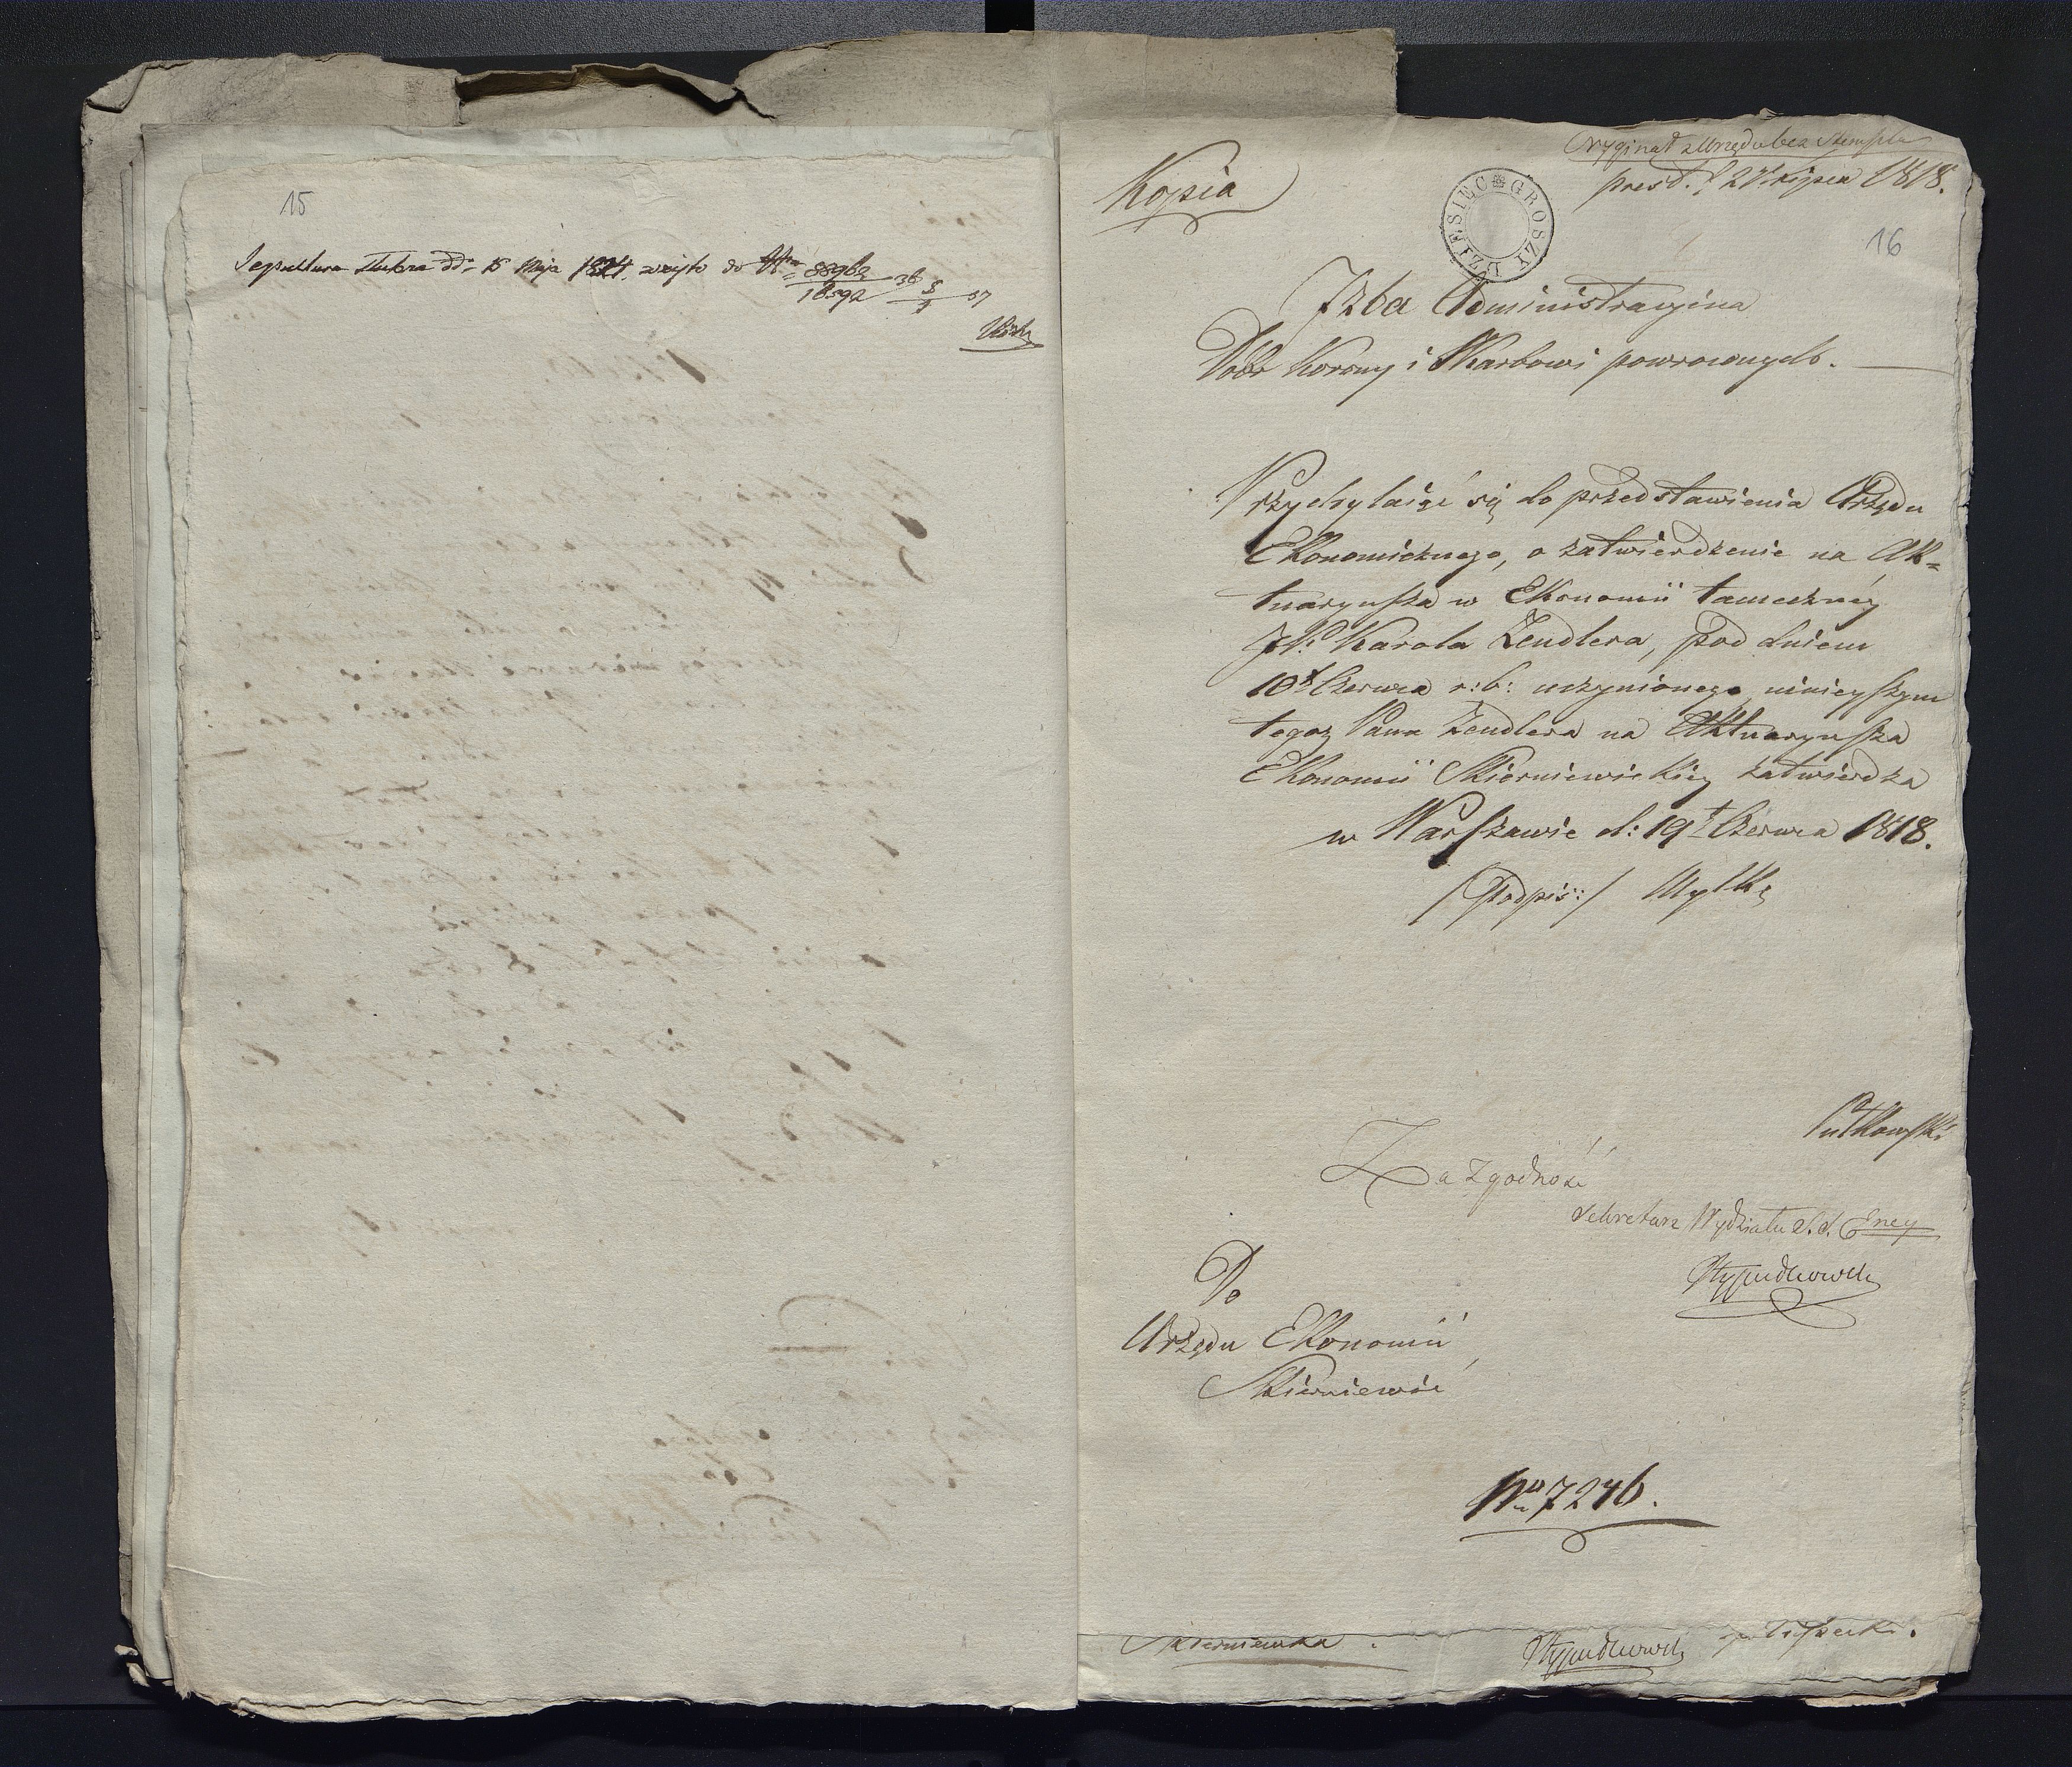 15
dd. 15 Maja wzięto do
88962
18592
Kopia
Oryginał z Urzędu bez Stempla
prest. d. 27 Lipca 1818.
DZIESIEC GROSZY
16
Izba Administracyina
Dóbr Korony i Skarbowi powroconych.
Przychylaiąc się do przedstawienia Urzędu
Ekonomicznego, o zatwierdzenie na Ak=
tuaryusza w Ekonomii tameczney
JP. Karola Zendlera, pod dniem
10t Czerwca r: b: uczynionego, ninieyszym
tegoż Pana Zendlera na Aktuaryusza
Ekonomii Skierniewickiey zatwierdza
w Warszawie d: 19t Czerwca 1818.
/Podpis:/
Putkowski
Za Zgodność
Sekretarz Wydziału
Do
Urzędu Ekonomii
Skierniewic
No 7246.